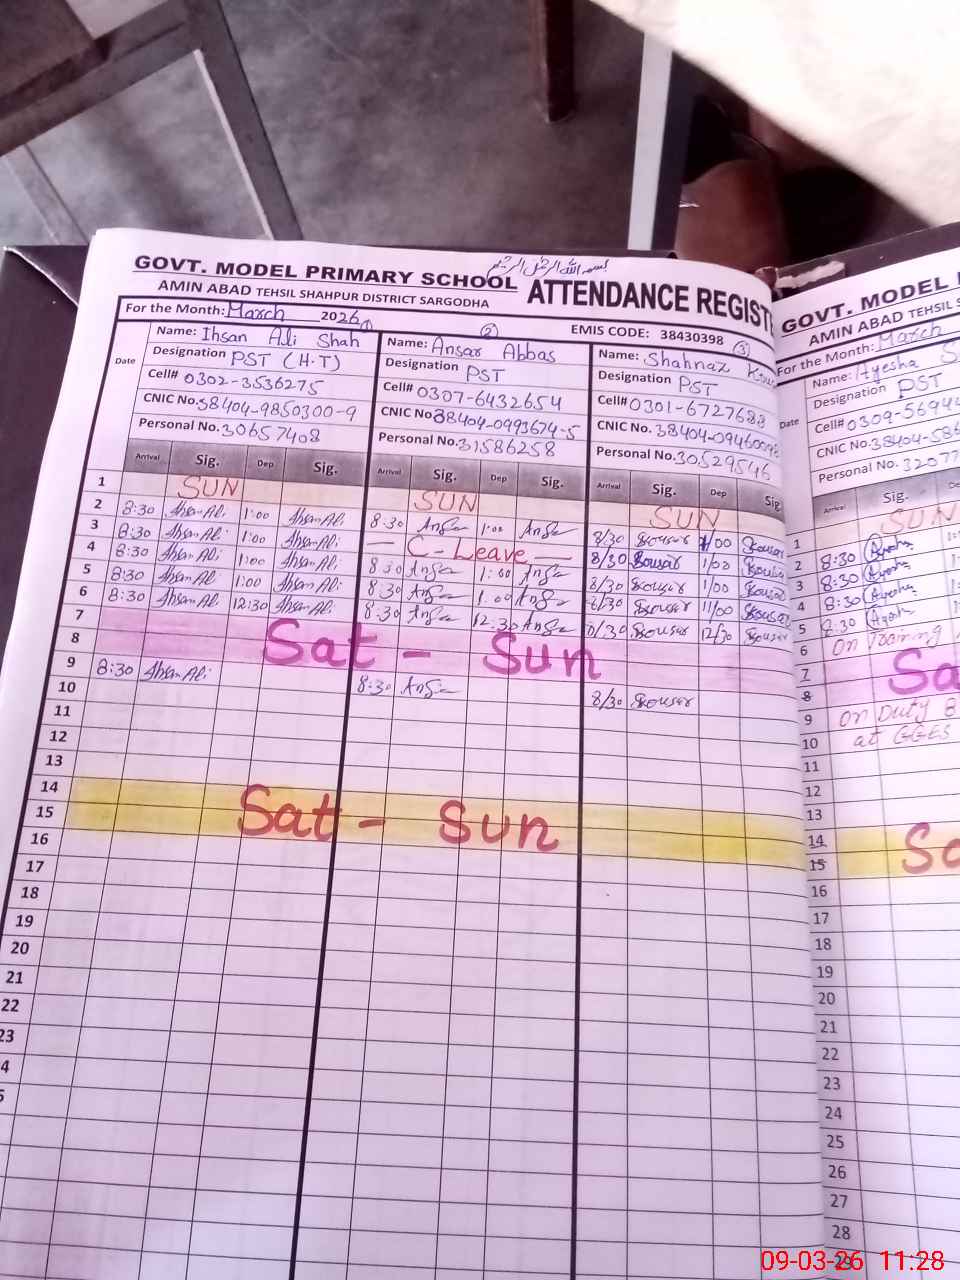 بسم الله الرحمن الرحيم
GOVT. MODEL PRIMARY SCHOOL
AMIN ABAD TEHSIL SHAHPUR DISTRICT SARGODHA
ATTENDANCE REGIST
For the Month: March 2026
EMIS CODE: 38430398
Date
① Name: Ihsan Ali Shah
Designation PST (H.T)
Cell# 0302-3536275
CNIC No. 38404-9850300-9
Personal No. 30657408
② Name: Ansar Abbas
Designation PST
Cell# 0307-6432654
CNIC No 38404-0993674-5
Personal No. 31586258
③ Name: Shahnaz
Designation PST
Cell# 0301-6727688
CNIC No. 38404-094600
Personal No. 30529546
Arrival Sig. Dep Sig. Arrival Sig. Dep Sig. Arrival Sig. Dep Sig
1 SUN SUN SUN
2 8:30 Ahsan Ali 1:00 Ahsan Ali 8:30 Ansar 1:00 Ansar 8/30 Kouser 1/00 Kouser
3 8:30 Ahsan Ali 1:00 Ahsan Ali — C-Leave — 8/30 Kouser 1/00
4 8:30 Ahsan Ali 1:00 Ahsan Ali 8:30 Ansar 1:00 Ansar 8/30 Kouser 1/00
5 8:30 Ahsan Ali 1:00 Ahsan Ali 8:30 Ansar 1:00 Ansar 8/30 Kouser 11/00
6 8:30 Ahsan Ali 12:30 Ahsan Ali 8:30 Ansar 12:30 Ansar 8/30 Kouser 12/30 Kouser
7
8 Sat - Sun
9 8:30 Ahsan Ali 8:30 Ansar 8/30 Kouser
10
11
12
13
14
15 Sat - Sun
16
17
18
19
20
21
22
23
4
5
GOVT. MODEL
AMIN ABAD TEHSIL
For the Month: March
Name: Ayesha
Designation PST
Date
Cell# 0309-5694
CNIC No. 38404-586
Personal No. 3207
Arrival Sig.
1 SUN
2 8:30 Ayesha
3 8:30 Ayesha
4 8:30 Ayesha
5 8:30 Ayesha
6 On Training
7 Sa
8
9 On Duty
10 at GGES
11
12
13
14
15 Sa
16
17
18
19
20
21
22
23
24
25
26
27
28
29
09-03-26 11:28